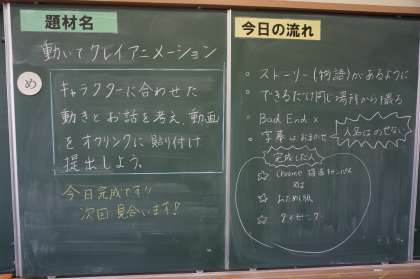 題材名
動いてクレイアニメーション
め
キャラクターに合わせた
動きとお話を考え、動画
をオクリンクに貼り付け
提出しよう。
今日完成です!!
次回見合います!
今日の流れ
ストーリー(物語)があるように
できるだけ同じ場所から撮る
Bad End ×
字幕はおまかせ
人名はのせない
完成した人
Chrome 描画キャンバス
おためし版
タイピング